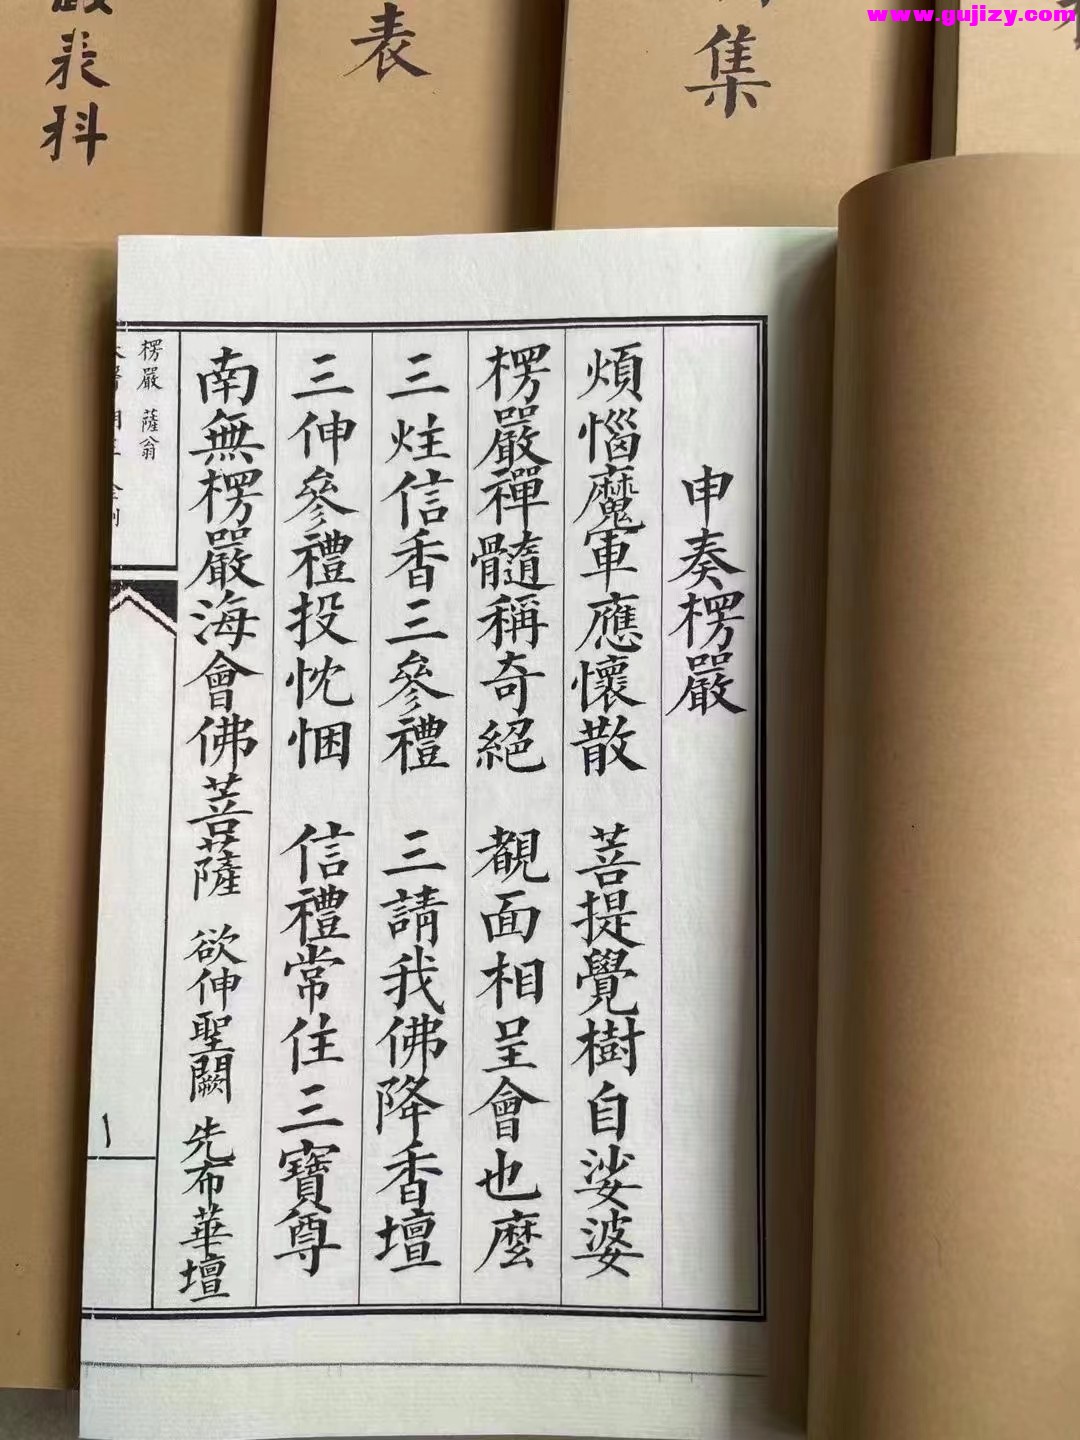 www.gujizy.com
集
表
表科
申奏楞嚴
煩惱魔軍應懷散 菩提覺樹自娑婆
楞嚴禪髓稱奇絕 覩面相呈會也麼
三炷信香三參禮 三請我佛降香壇
三伸參禮投忱悃 信禮常住三寶尊
南無楞嚴海會佛菩薩 欲伸聖闕 先布華壇
楞嚴 薩翁